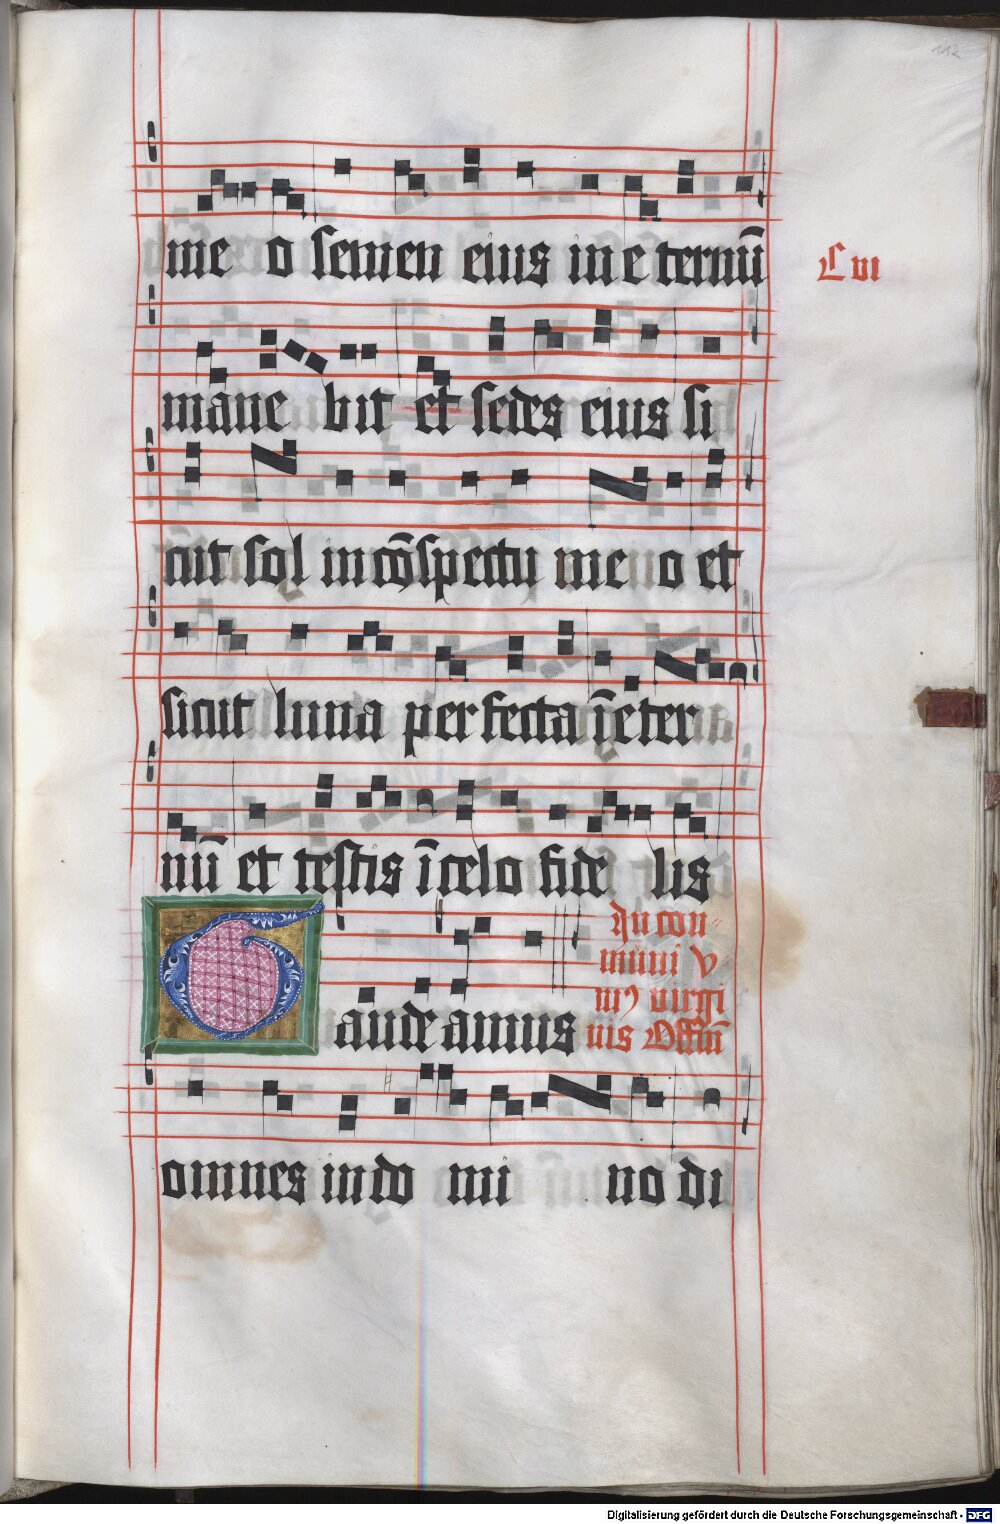 112
me o semen eius in e ternū
C vi
mane bit et sedes eius si
cut sol in cōspectu me o et
sicut luna perfecta ī eter
nū et testis ī celo fide lis
In con-
muni v
niꝰ virgi
nis Offm̄
Gaude amus
omnes in do mi no di
Digitalisierung gefördert durch die Deutsche Forschungsgemeinschaft - DFG